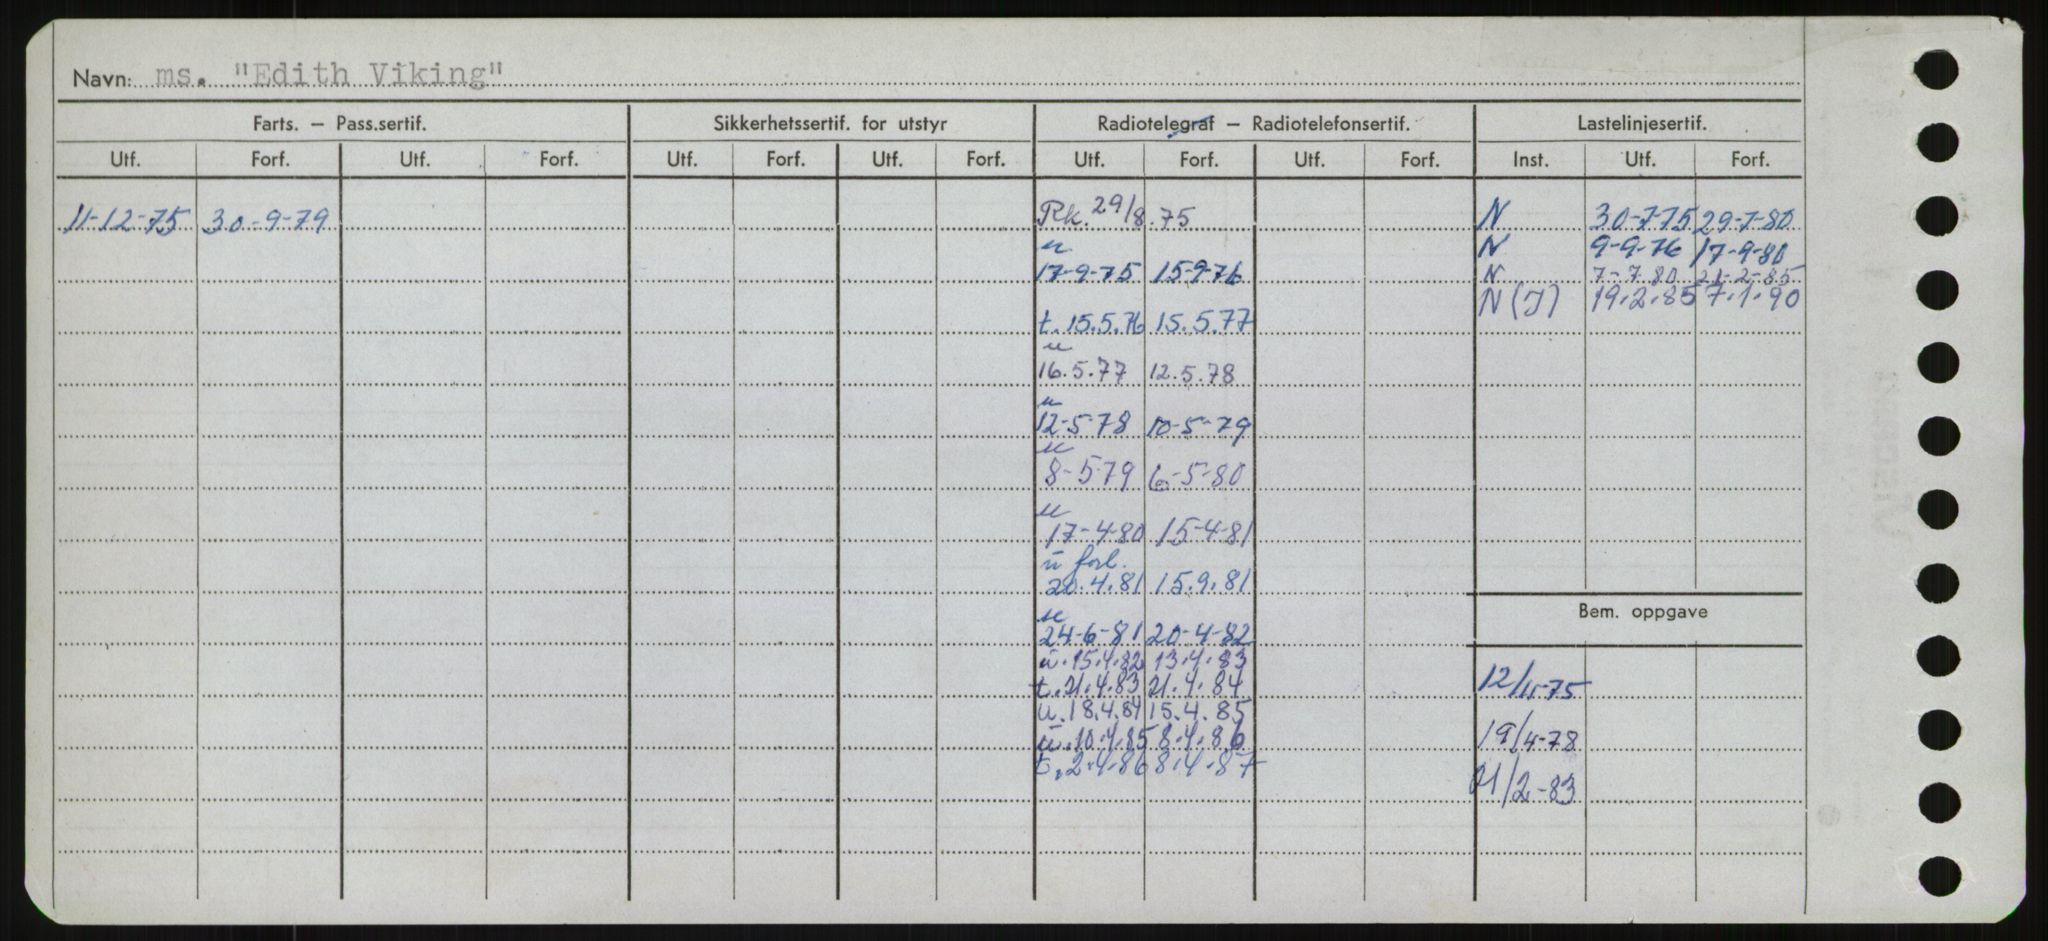 Navn: ms. "Edith Viking"
Farts. – Pass.sertif. Sikkerhetssertif. for utstyr Radiotelegraf – Radiotelefonsertif. Lastelinjesertif.
Utf. Forf. Utf. Forf. Utf. Forf. Utf. Forf. Utf. Forf. Utf. Forf. Inst. Utf. Forf.
11-12-75 30-9-79 Rk. 29/8.75 N 30-7-75 29-7-80
u N 9-9-76 17-9-80
17-9-75 15-9-76 N 7-7-80 21-2-85
N(J) 19.2.85 7.1.90
t. 15.5.76 15.5.77
u
16.5.77 12.5.78
u
12-5-78 10-5-79
u
8-5-79 6-5-80
u
17-4-80 15-4-81
u forl.
20.4.81 15.9.81
Bem. oppgave
u
24-6-81 20-4-82
u. 15.4.82 13.4.83
t. 21.4.83 21.4.84 12/11-75
u. 18.4.84 15.4.85
u. 10.4.85 8.4.86 19/4-78
t. 2.4.86 8.4.87
21/2-83